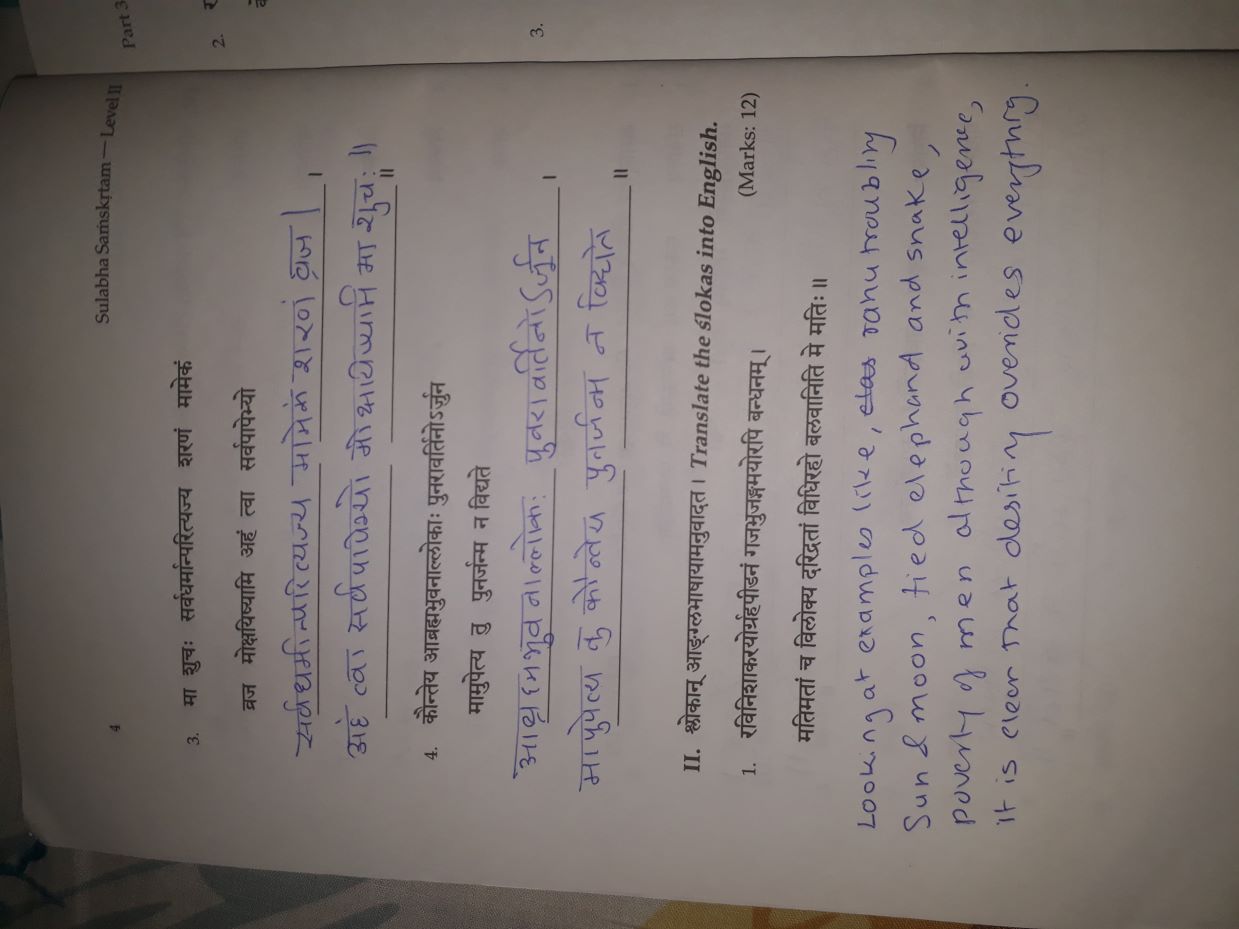 4
Sulabha Saṁskṛtam — Level II
Part 3
3. मा शुचः सर्वधर्मान्परित्यज्य शरणं मामेकं
2.
व्रज मोक्षयिष्यामि अहं त्वा सर्वपापेभ्यो
सर्वधर्मान्परित्यज्य मामेकं शरणं व्रज | ।
अहं त्वा सर्वपापेभ्यो मोक्षयिष्यामि मा शुचः ॥ ॥
4. कौन्तेय आब्रह्मभुवनाल्लोकाः पुनरावर्तिनोऽर्जुन
मामुपेत्य तु पुनर्जन्म न विद्यते
आब्रह्मभुवनाल्लोकः पुनरावर्तिनोऽर्जून ।
3.
मापुपेत्य तु कौन्तेय पुनर्जन्म न विद्यते ॥
II. श्लोकान् आङ्ग्लभाषायामनुवादत । Translate the ślokas into English.
(Marks: 12)
1. रविनिशाकरयोर्ग्रहपीडनं गजभुजङ्गमयोरपि बन्धनम् ।
मतिमतां च विलोक्य दरिद्रतां विधिरहो बलवानिति मे मतिः ॥
Looking at examples like, rahu troubling
Sun & moon, tied elephand and snake,
poverty of men although with intelligence,
it is clear that desitiny overides everything.